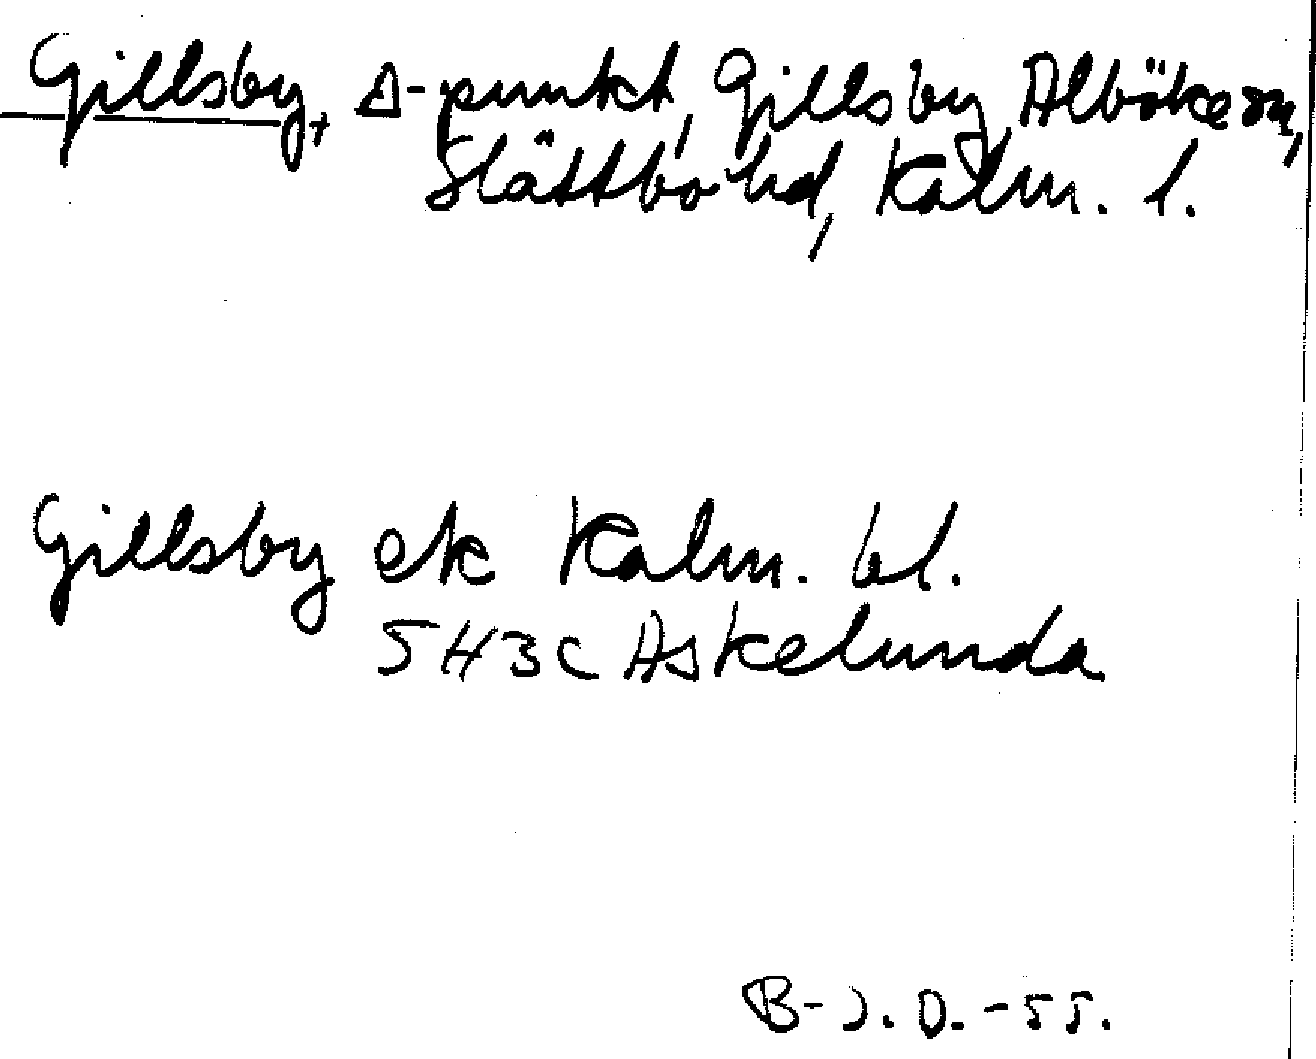 Gillsby, Δ-punkt, Gillsby, Alböke sn,
Slättbo hd, Kalm. l.
Gillsby ek Kalm. bl.
5H3C Askelunda
B-J.D.-55.